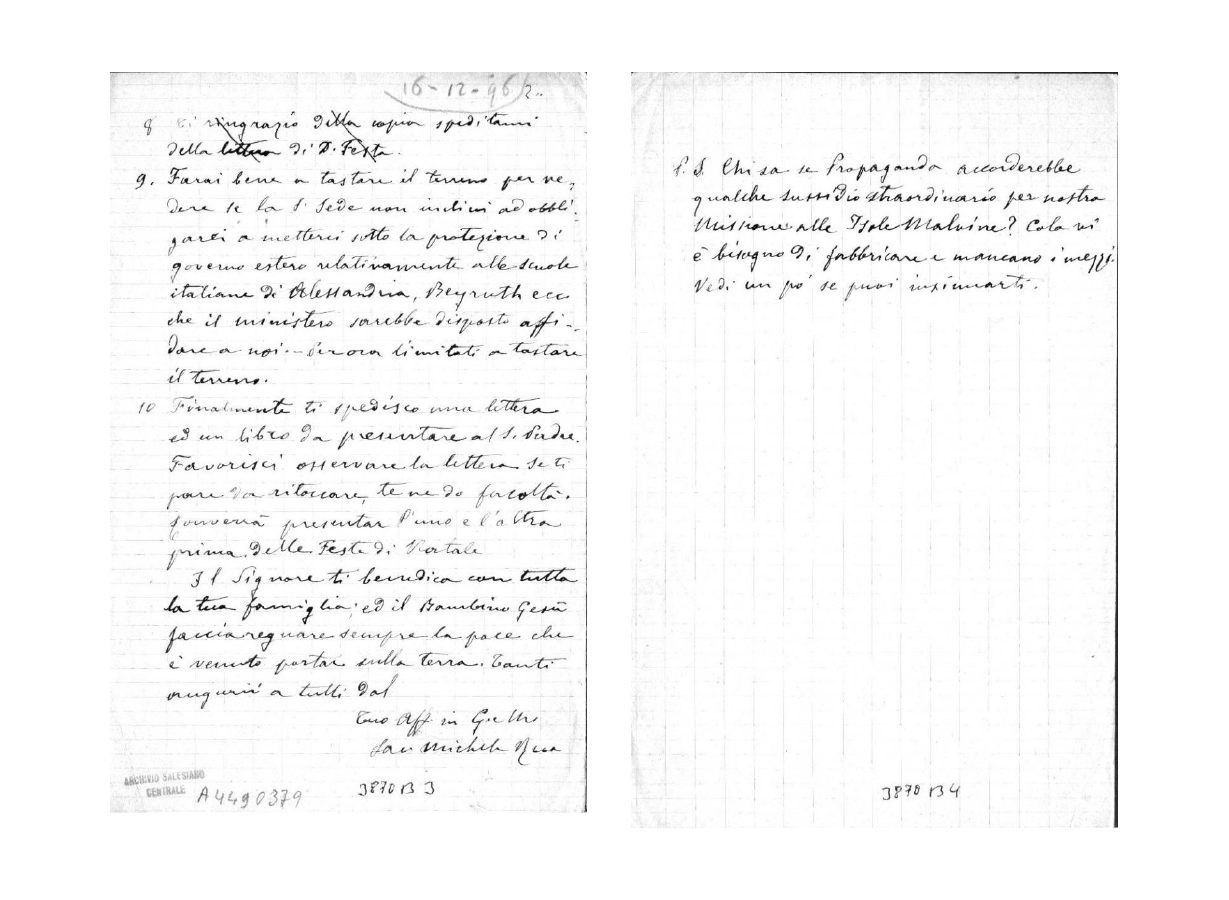 16-12-96 2..
8 Ti ringrazio della copia speditami
della lettera di D. Festa.
9. Farai bene a tastare il terreno per ve-
dere se la S. Sede non inclini ad obbli-
garci a metterci sotto la protezione di
governo estero relativamente alle scuole
italiane di Alessandria, Beyruth ecc
che il ministero sarebbe disposto affi-
dare a noi. Per ora limitati a tastare
il terreno.
10 Finalmente ti spedisco una lettera
ed un libro da presentare al S. Padre.
Favorisci osservare la lettera se ti
pare da ritoccare, te ne do facoltà.
Converrà presentar l'uno e l'altra
prima delle Feste di Natale
Il Signore ti benedica con tutta
la tua famiglia; ed il Bambino Gesù
faccia regnare sempre la pace che
è venuto portar sulla terra. Tanti
augurii a tutti dal
Tuo Aff in G. e M.
Sac Michele Rua
ARCHIVIO SALESIANO
CENTRALE
A4490379
3870 B 3
P. S. Chi sa se Propaganda accorderebbe
qualche sussidio straordinario per nostra
Missione alle Isole Malvine? Colà vi
è bisogno di fabbricare e mancano i mezzi.
Vedi un pò se puoi insinuarti.
3870 B 4